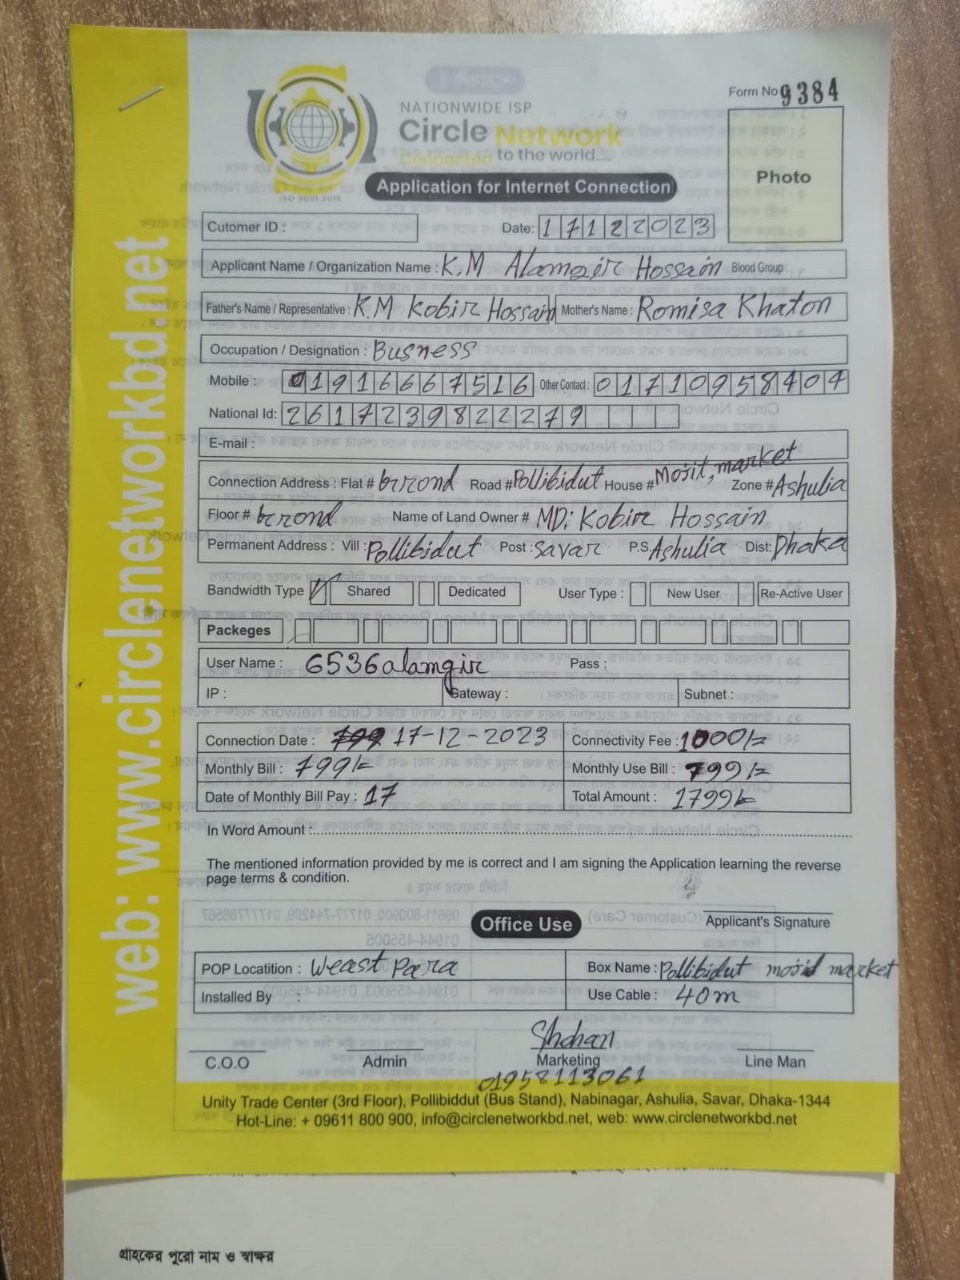 Form No 9384
NATIONWIDE ISP
Circle Network
Connected to the world...
ISO 9001:2015
Photo
Application for Internet Connection
Cutomer ID : Date: 17122023
Applicant Name / Organization Name : K.M Alamgir Hossain Blood Group:
Father's Name / Representative : K.M Kobir Hossain Mother's Name : Romisa Khaton
Occupation / Designation : Busness
Mobile : 01916667516 Other Contact : 01710958404
National Id: 2617239822279
E-mail :
Connection Address : Flat # Grrond Road # Pollibidut House # Mosjit, market Zone # Ashulia
Floor # Grrond Name of Land Owner # MD: Kobir Hossain
Permanent Address : Vill : Pollibidut Post : Savar P.S Ashulia Dist: Dhaka
Bandwidth Type Shared Dedicated User Type : New User Re-Active User
Packeges
User Name : 6536alamgir Pass :
IP : Gateway : Subnet :
Connection Date : 17-12-2023 Connectivity Fee : 1000/=
Monthly Bill : 799/= Monthly Use Bill : 799/=
Date of Monthly Bill Pay : 17 Total Amount : 1799/=
In Word Amount :
The mentioned information provided by me is correct and I am signing the Application learning the reverse
page terms & condition.
Office Use
Applicant's Signature
POP Locatition : Weast Para Box Name : Pollibidut market
Installed By : Use Cable : 40m
Shohan
C.O.O Admin Marketing Line Man
01958113061
Unity Trade Center (3rd Floor), Pollibiddut (Bus Stand), Nabinagar, Ashulia, Savar, Dhaka-1344
Hot-Line: + 09611 800 900, info@circlenetworkbd.net, web: www.circlenetworkbd.net
web: www.circlenetworkbd.net
গ্রাহকের পুরো নাম ও স্বাক্ষর